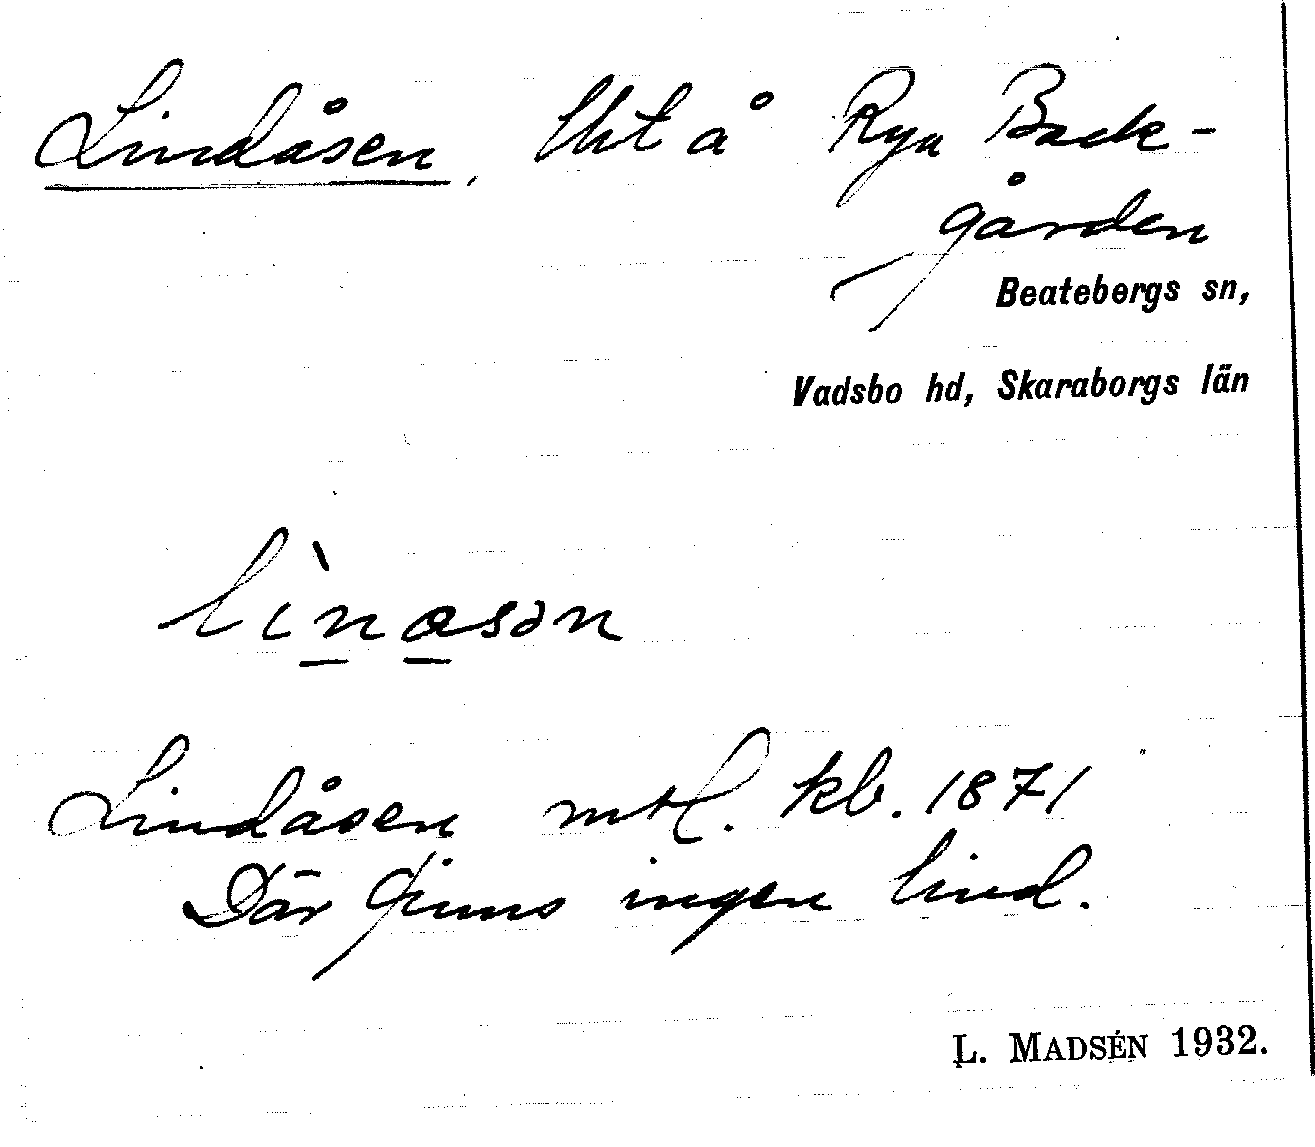 Lindåsen, lht å Rya Back-
gården
Beatebergs sn,
Vadsbo hd, Skaraborgs län
lìnasən
Lindåsen mtl. kb. 1871
Där finns ingen lind.
L. MADSÉN 1932.